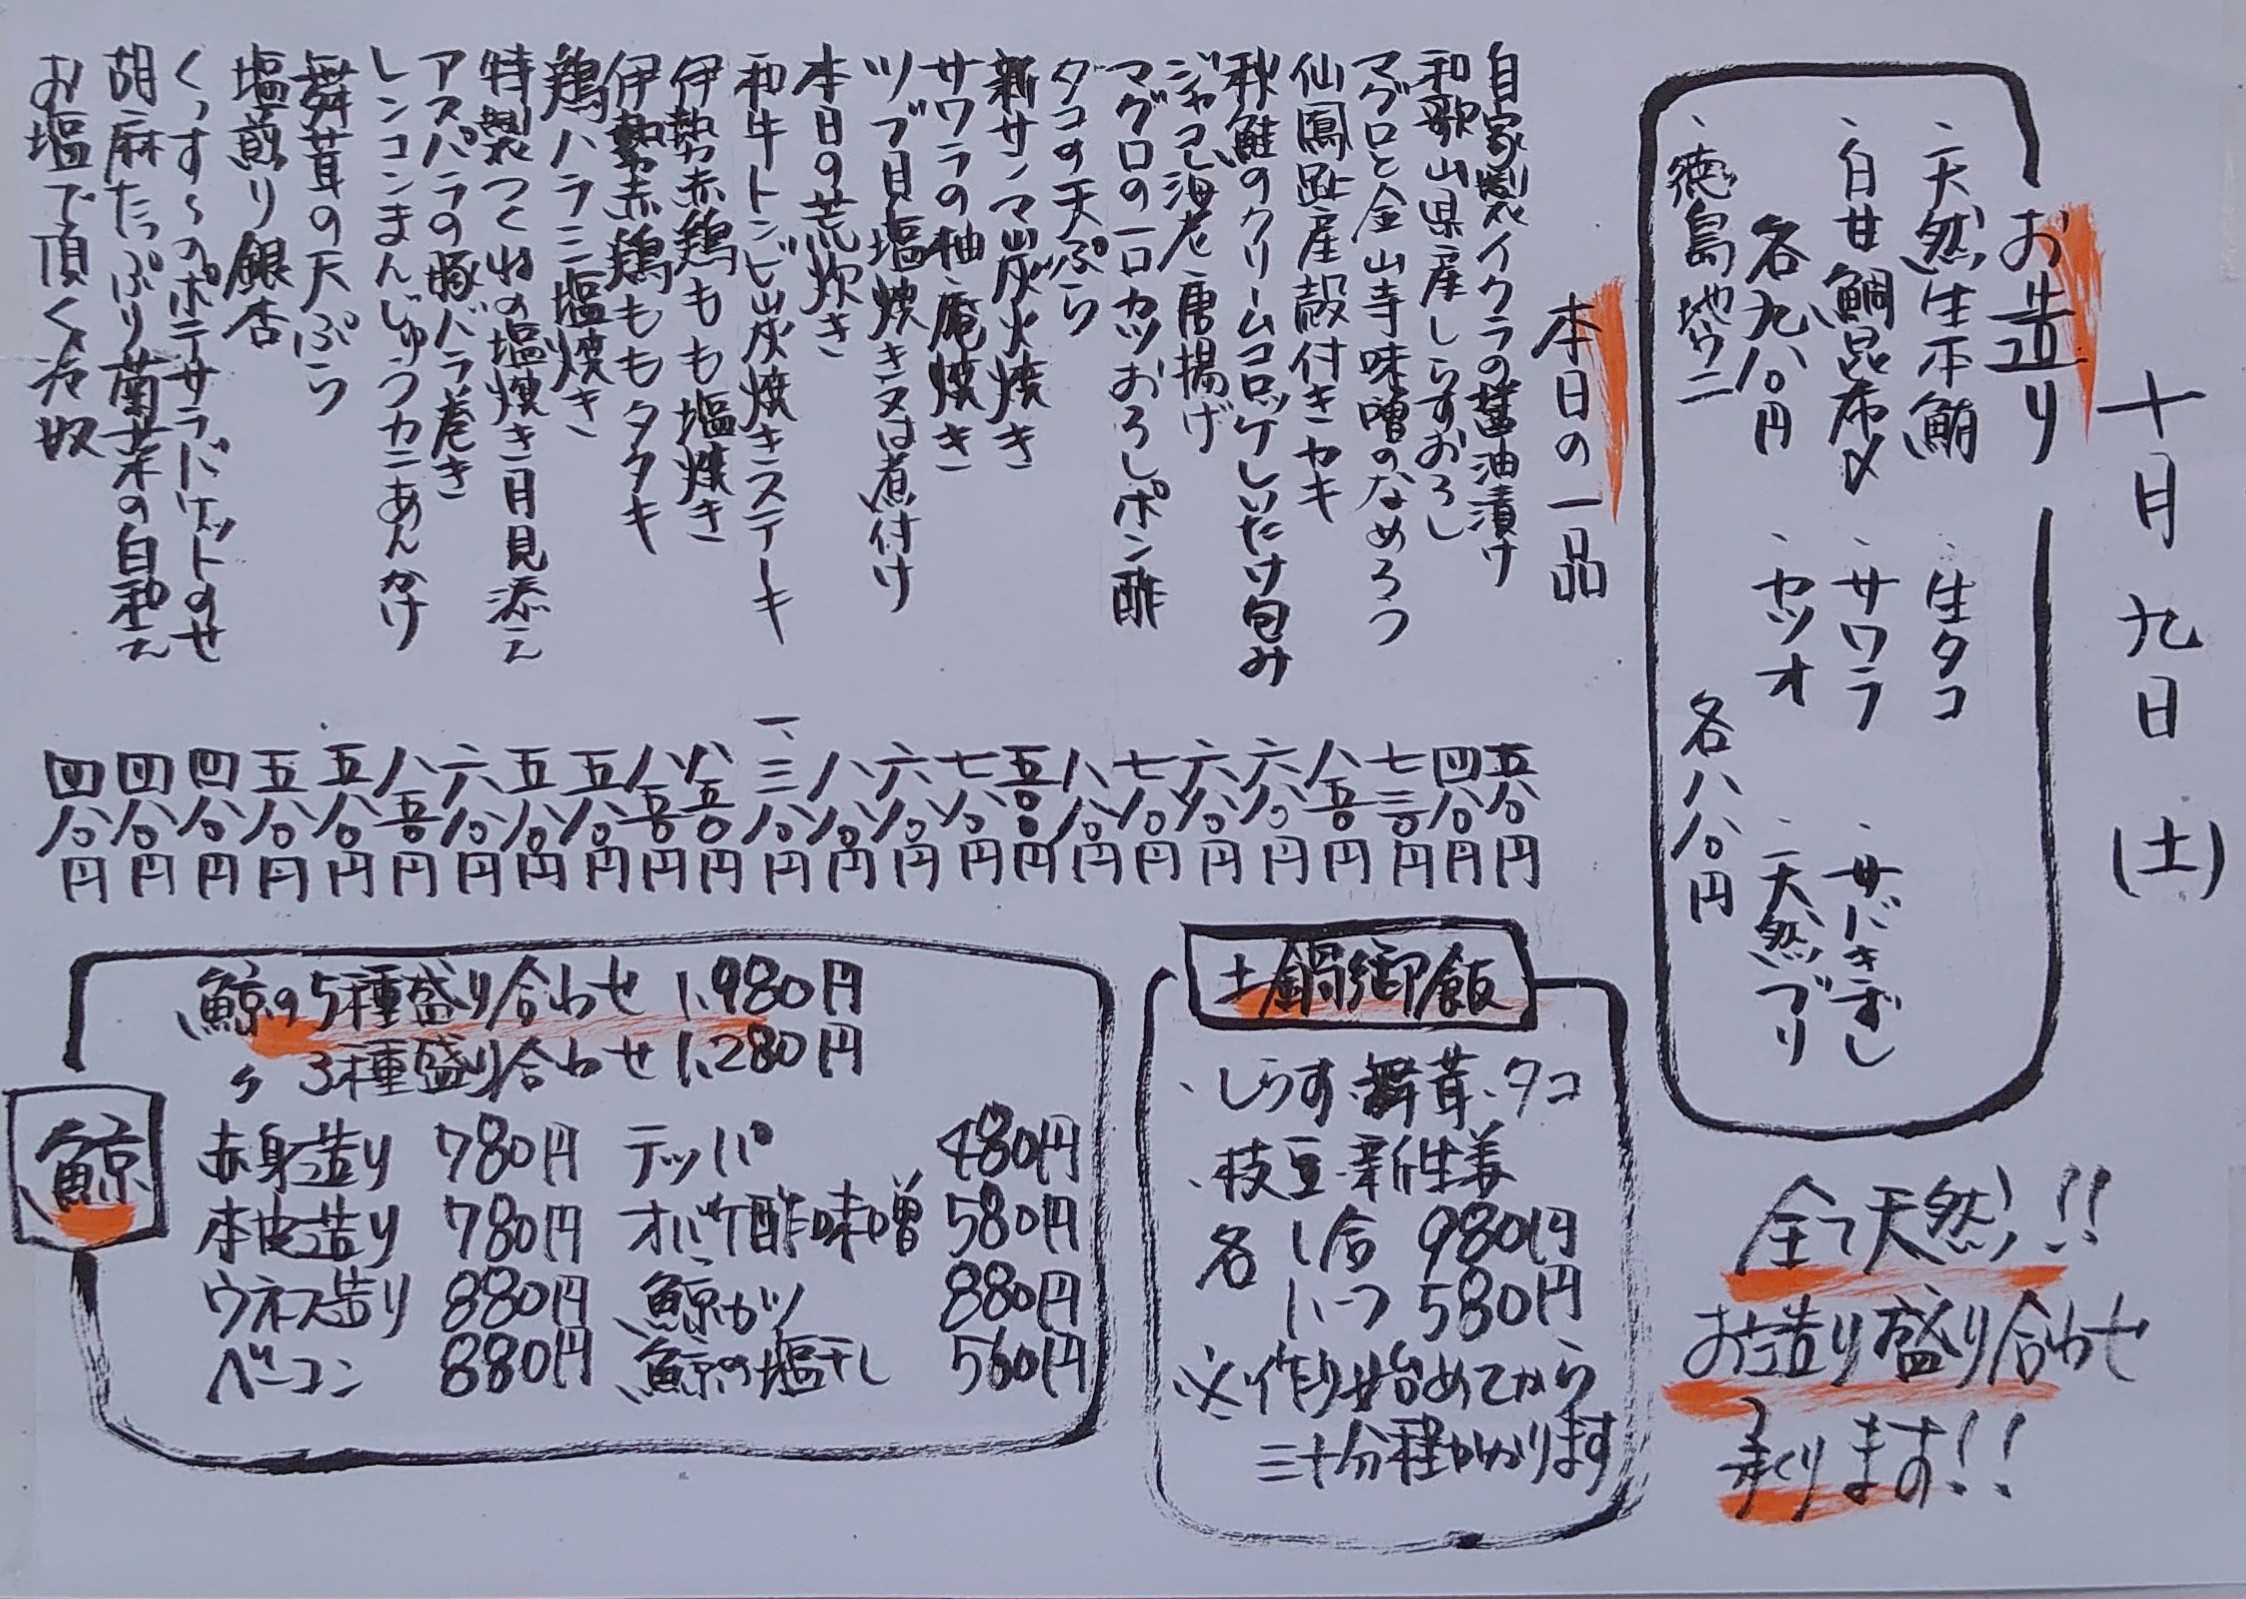 十月九日(土)
お造り
、天然生本鮪
、白甘鯛昆布〆
各九八〇円
、生タコ
、サワラ
、カツオ
、サバきずし
、天然ブリ
、徳島地ウニ
各八八〇円
本日の一品
自家製イクラの醤油漬け 五八〇円
和歌山県産しらすおろし 四八〇円
マグロと金山寺味噌のなめろう 七三〇円
仙鳳趾産殻付きカキ 八五〇円
秋鮭のクリームコロッケしいたけ包み 六八〇円
ジャコ海老唐揚げ 六八〇円
マグロの一口カツおろしポン酢 七八〇円
タコの天ぷら 八八〇円
新サンマ炭火焼き 五〇〇円
サワラの柚庵焼き 七八〇円
ツブ貝塩焼き又は煮付け 六八〇円
本日の荒炊き 八八〇円
和牛トンビ炭焼きステーキ 一、三八〇円
伊勢赤鶏もも塩焼き 八五〇円
伊勢赤鶏ももタタキ 八五〇円
鶏ハラミ塩焼き 五八〇円
特製つくねの塩焼き月見添え 五八〇円
アスパラの豚バラ巻き 六八〇円
レンコンまんじゅうカニあんかけ 八五〇円
舞茸の天ぷら 五八〇円
塩煎り銀杏 五八〇円
くっす〜のポテサラバケットのせ 四八〇円
胡麻たっぷり菊菜の白和え 四八〇円
お塩で頂く冷奴 四八〇円
全て天然!!
お造り盛り合わせ
承ります!!
土鍋御飯
、しらす、舞茸、タコ
、枝豆、新生姜
各 1合 980円
ハーフ 580円
※作り始めてから
三十分程かかります
鯨
鯨の5種盛り合わせ 1,980円
〃 3種盛り合わせ 1,280円
赤身造り 780円 テッパ 480円
本皮造り 780円 オバケ酢味噌 580円
ウネス造り 880円 鯨カツ 880円
ベーコン 880円 鯨の塩干し 560円